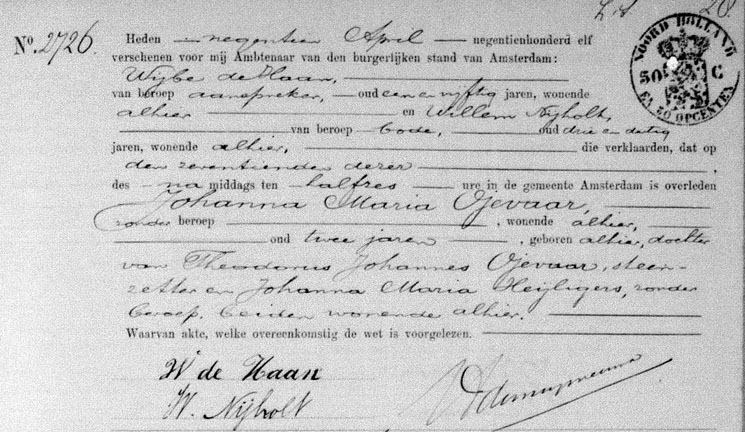 28.
NOORD HOLLAND
50 C
EN 50 OPCENTEN
No. 2726. Heden negentien April negentienhonderd elf
verschenen voor mij Ambtenaar van den burgerlijken stand van Amsterdam:
Wijbe de Haan,
van beroep aanspreker, oud een en vijftig jaren, wonende
alhier en Willem Nijholt,
van beroep bode, oud drie en dertig
jaren, wonende alhier, die verklaarden, dat op
den zeventiende dezer,
des na middags ten halfzes ure in de gemeente Amsterdam is overleden
Johanna Maria Ojevaar,
zonder beroep, wonende alhier,
oud twee jaren, geboren alhier, dochter
van Theodorus Johannes Ojevaar, steen-
zetter en Johanna Maria Heijligers, zonder
beroep, beiden wonende alhier.
Waarvan akte, welke overeenkomstig de wet is voorgelezen.
W de Haan
W. Nijholt